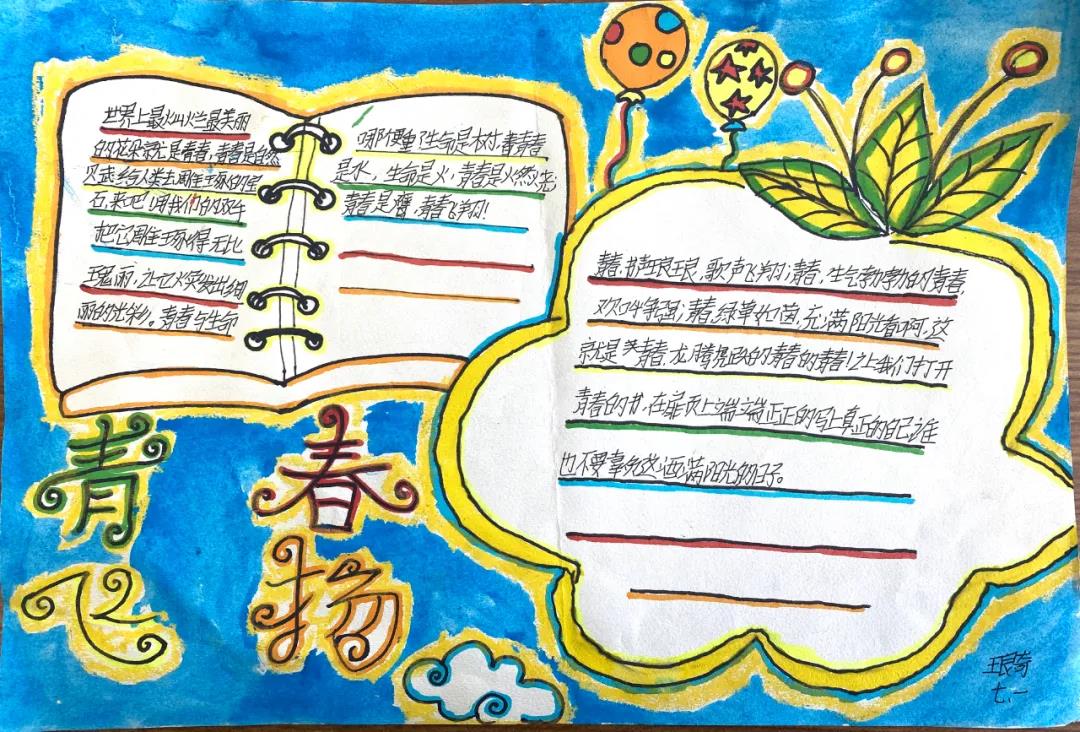 世界上最灿烂最美丽
的花朵就是青春,青春是自然
给人类去周的宝
石,来吧!用我们的双手
把它得无比
瑰丽,让它火突发出绚
丽的光彩。青春与生命
生命是树,青春
是水,生命是火,青春是火然光
青春是鹰,青春飞翔!
青春,书声琅琅,歌声飞翔;青春,生气勃勃的青春
欢呼争强;青春,绿草如茵,充满阳光看啊,这
就是青春,龙腾虎的青春的青春!让我们打开
青春的书,在扉页上端端正正的写上真正的自己谁
也不要辜负这洒满阳光的日子。
青春
飞扬
七.一